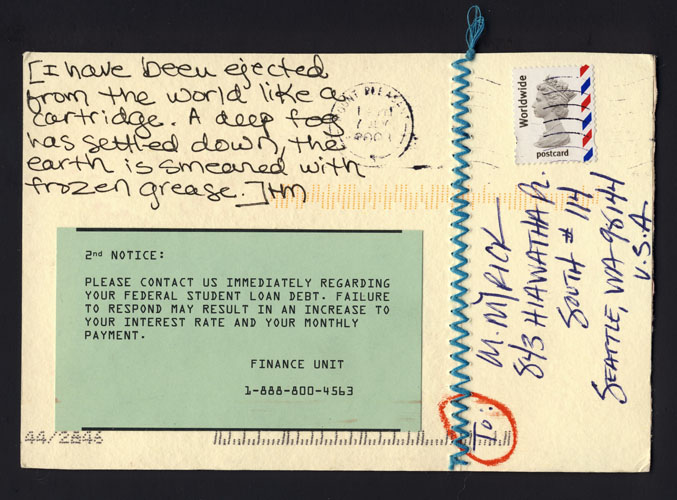 [I have been ejected
from the world like a
cartridge. A deep fog
has settled down, the
earth is smeared with
frozen grease.]HM
2nd NOTICE:
PLEASE CONTACT US IMMEDIATELY REGARDING
YOUR FEDERAL STUDENT LOAN DEBT. FAILURE
TO RESPOND MAY RESULT IN AN INCREASE TO
YOUR INTEREST RATE AND YOUR MONTHLY
PAYMENT.
FINANCE UNIT
1-888-800-4563
44/2846
Worldwide
postcard
To:
M. MYRICK
843 HIAWATHA PL.
SOUTH # 114
SEATTLE, WA 98144
U.S.A